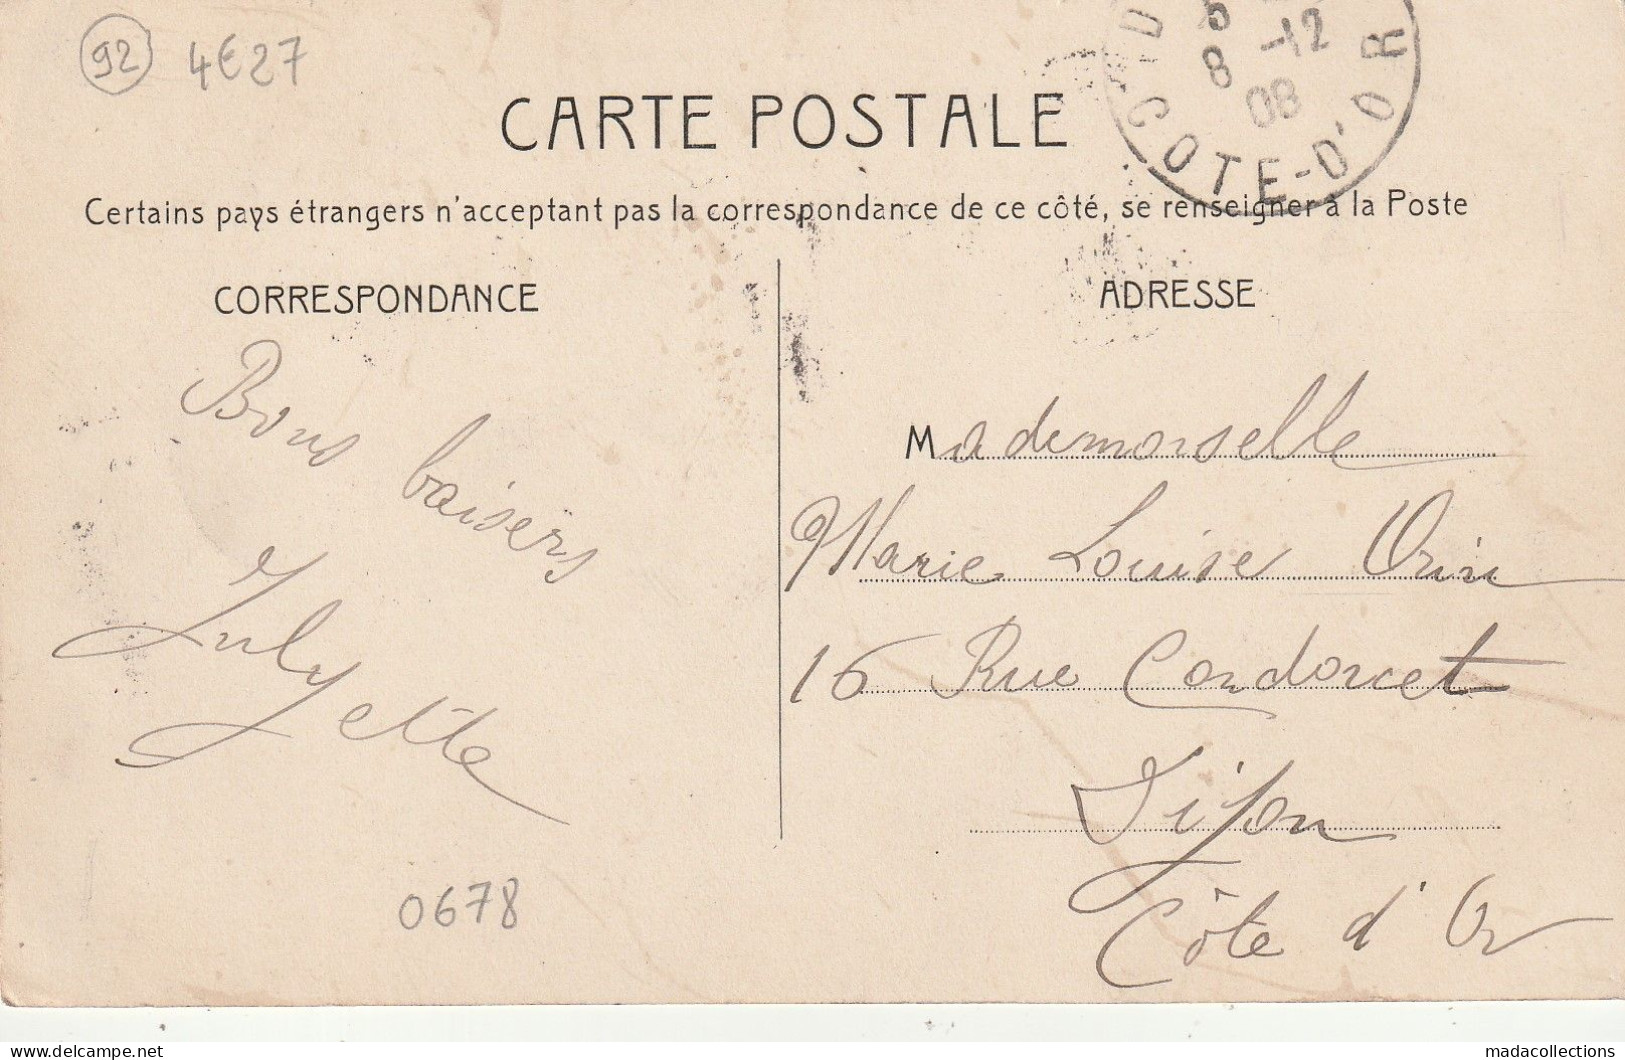 92 4€27
D
8 -12
08
COTE-D'OR
CARTE POSTALE
Certains pays étrangers n'acceptant pas la correspondance de ce côté, se renseigner à la Poste
CORRESPONDANCE
Bons baisers
0678
ADRESSE
Mademoiselle
Marie Louise
16 Rue Condorcet
Dijon
Côte d'Or
delcampe.net
madacollections